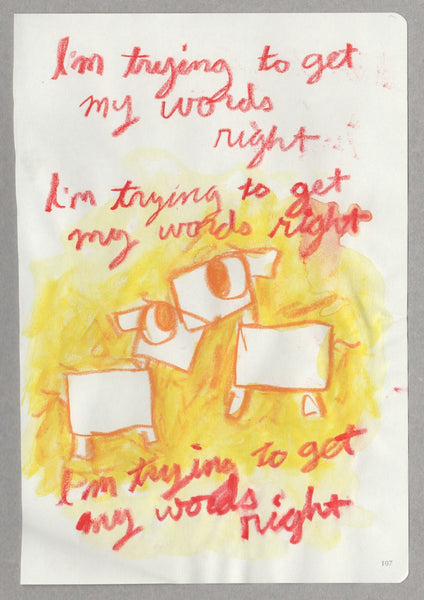 I'm trying to get
my words
right
I'm trying to get
my words right
I'm trying to get
my words
right
107